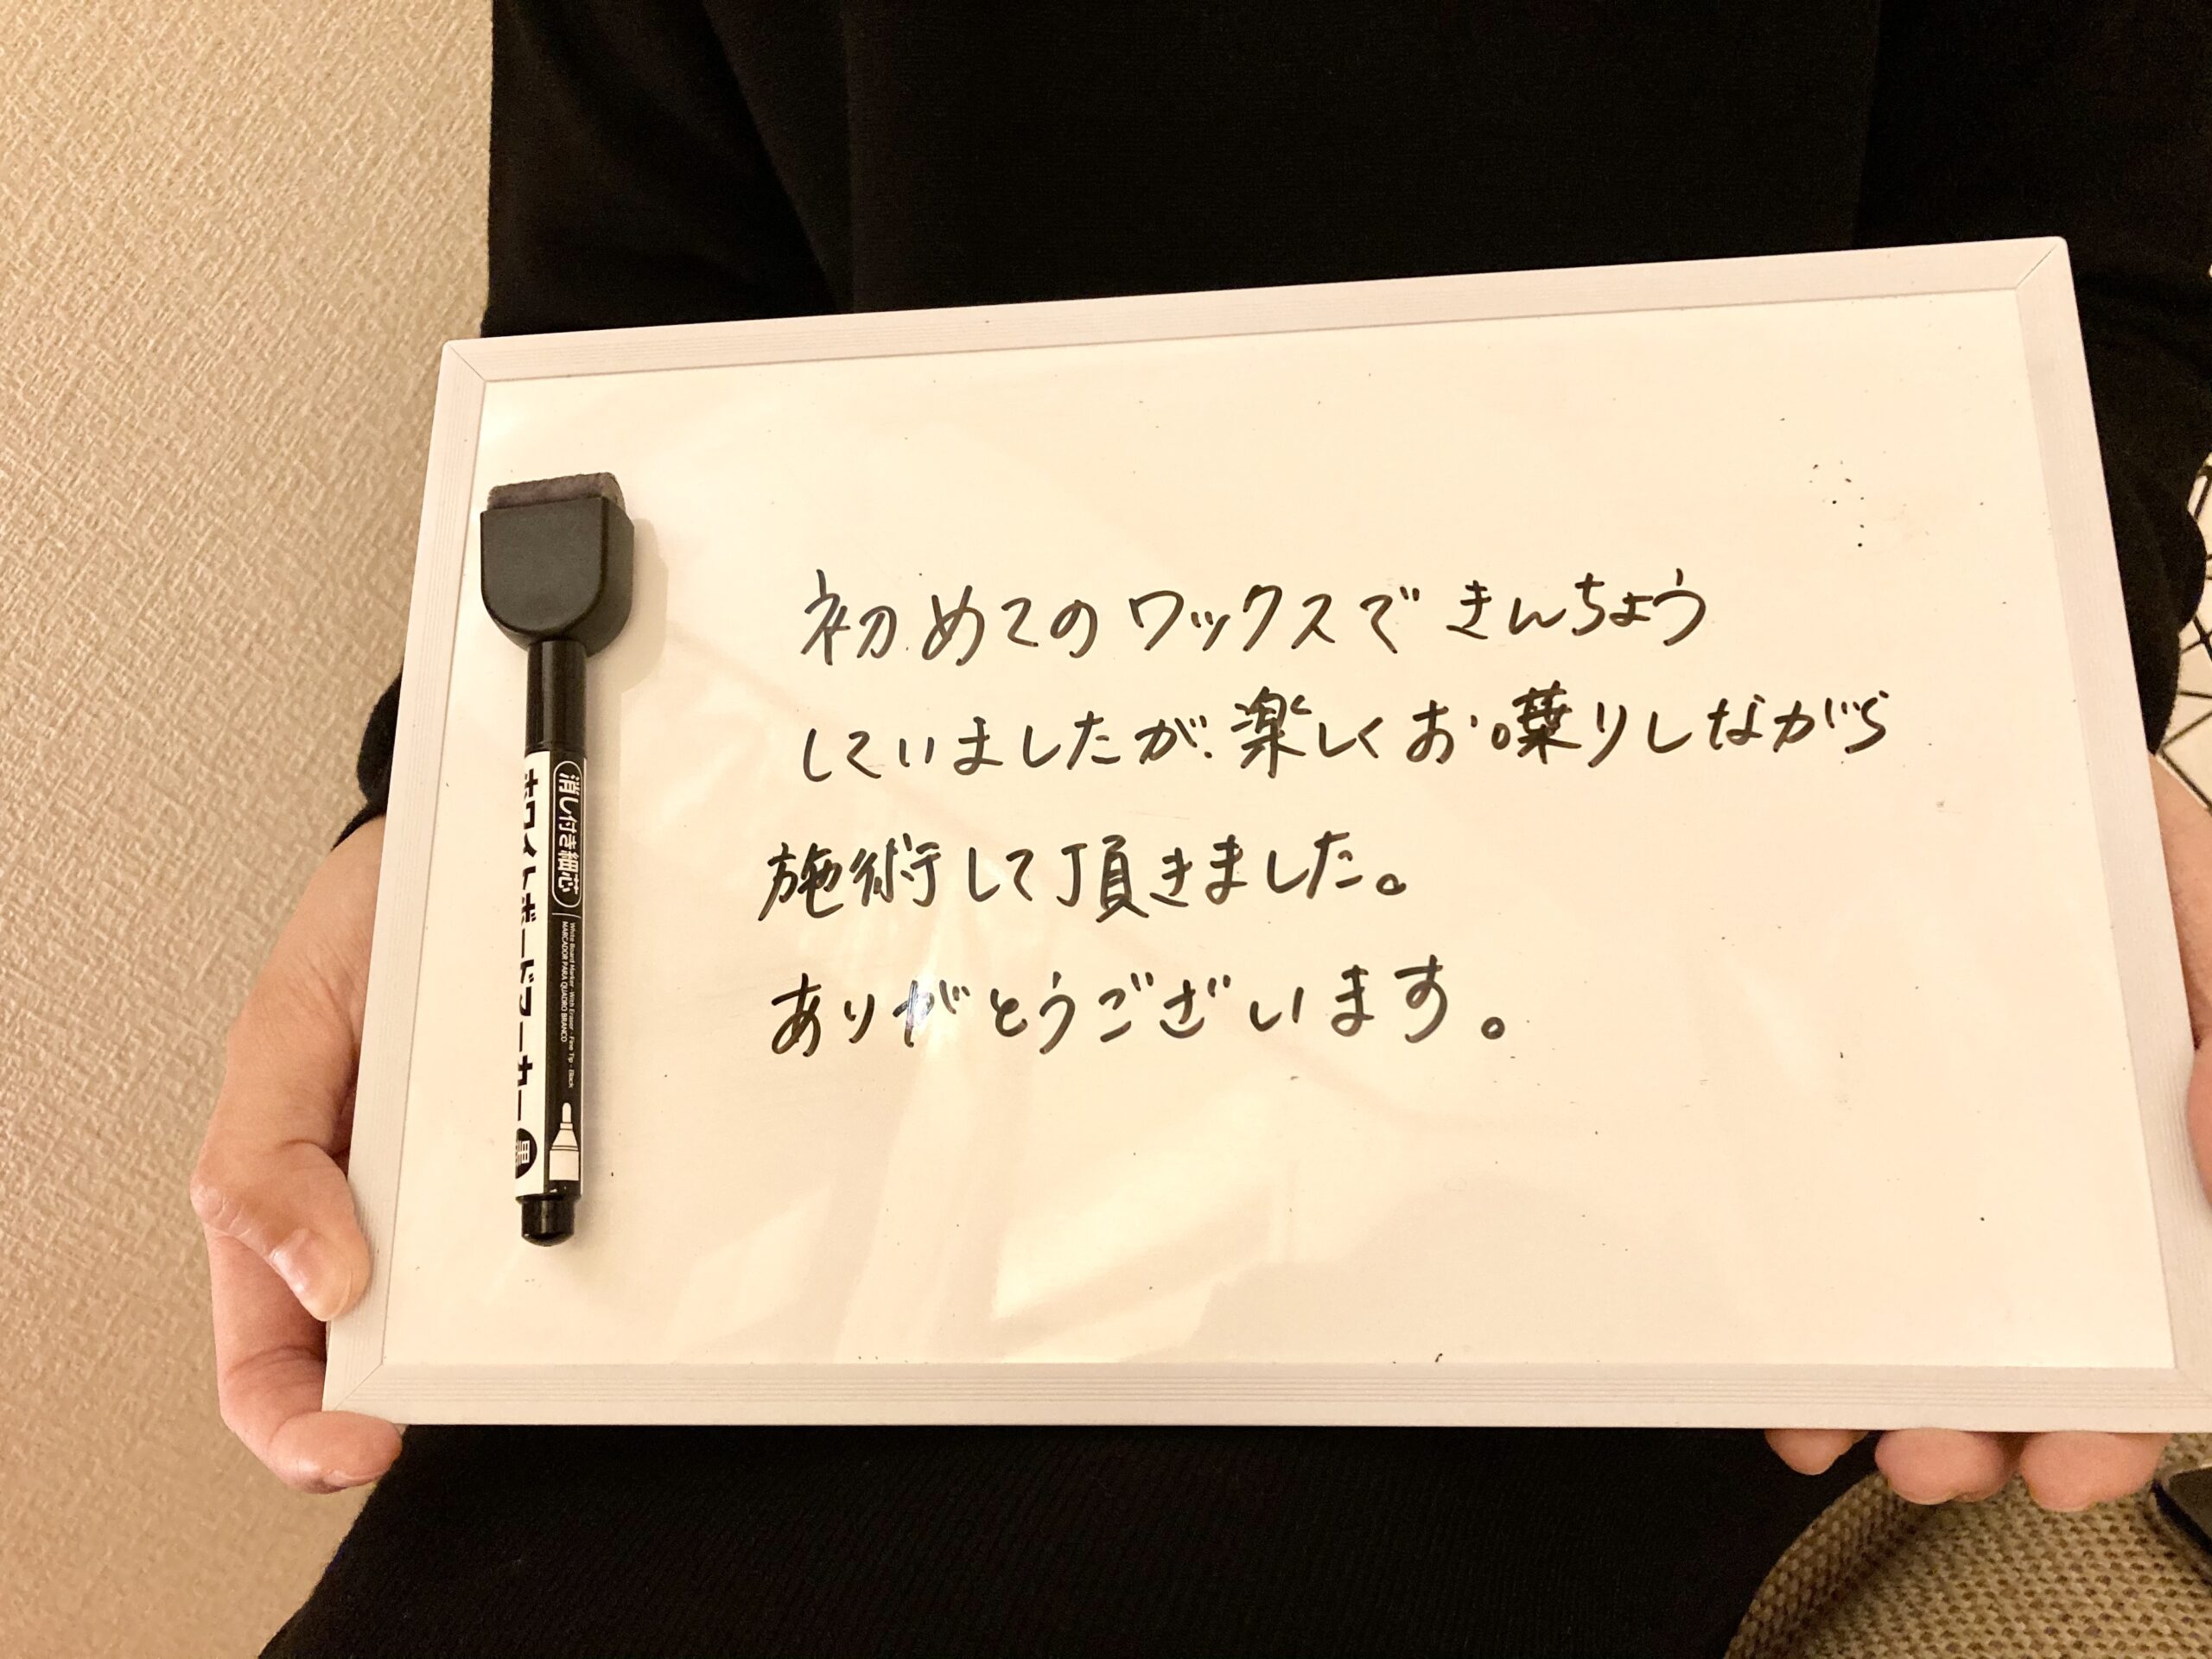 初めてのワックスできんちょう
していましたが、楽しくお喋りしながら
施術して頂きました。
ありがとうございます。
消し付き細芯
White Board Marker -With Eraser - Fine Tip - Black
MARCADOR PARA QUADRO BRANCO
ホワイトボードマーカー
黒